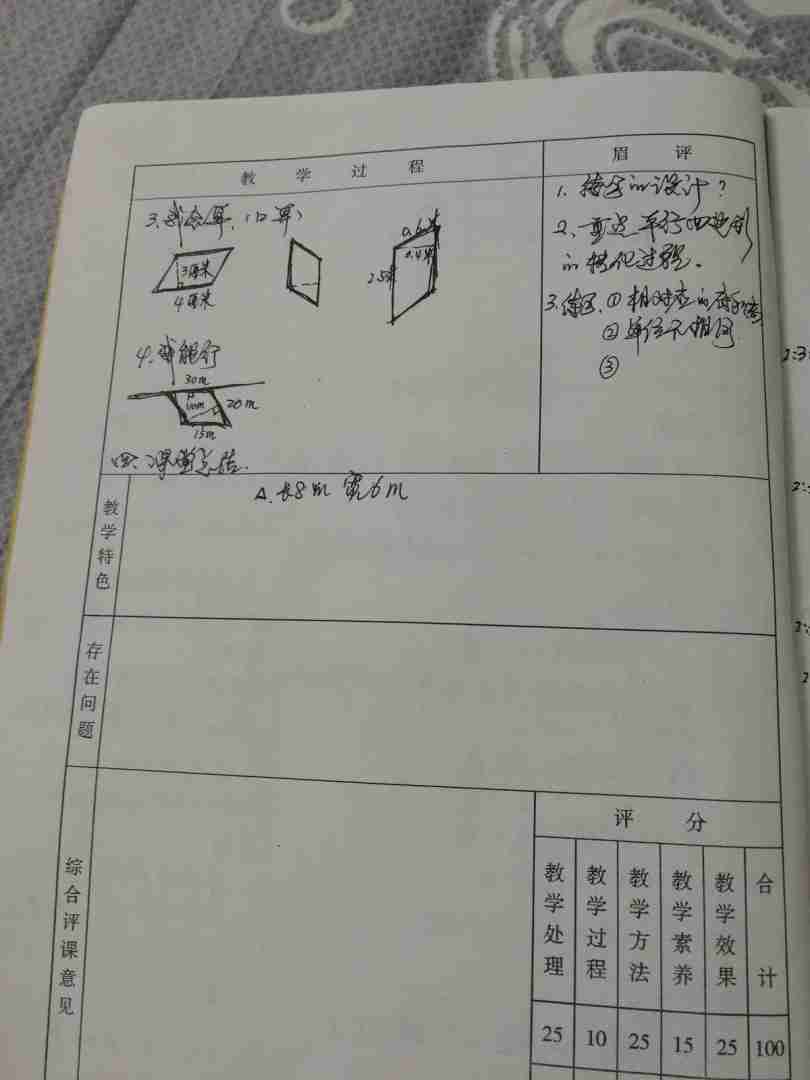 教 学 过 程
眉 评
3、我会算.(口算)
3厘米
4厘米
0.6米
0.4米
2.5米
4、我能行
30m
20m
15m
四、课堂总结.
1. 接的设计?
2、重点平行四边形
的转化过程.
3.练习.①相对应的底和高
②单位不相同
③
A.长8m 宽6m
教学特色
存在问题
综合评课意见
评 分
教学处理
教学过程
教学方法
教学素养
教学效果
合计
25 10 25 15 25 100